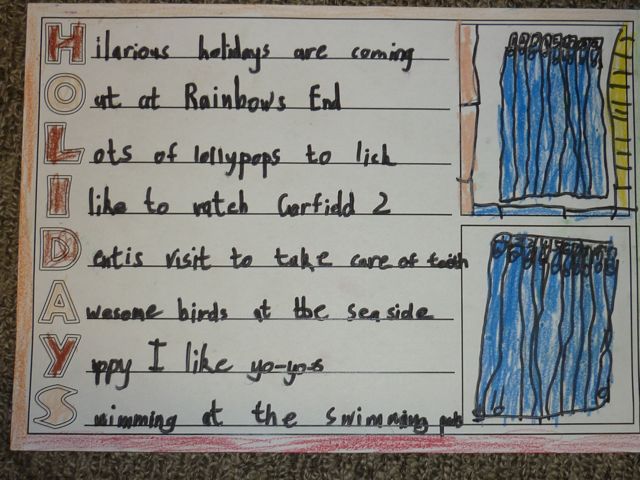 Hilarious holidays are coming
Out at Rainbows End
Lots of lollypops to lick
I like to watch Garfield 2
Dentis visit to take care of tooth
Awesome birds at the seaside
Yppy I like yo-yos
Swimming at the swimming